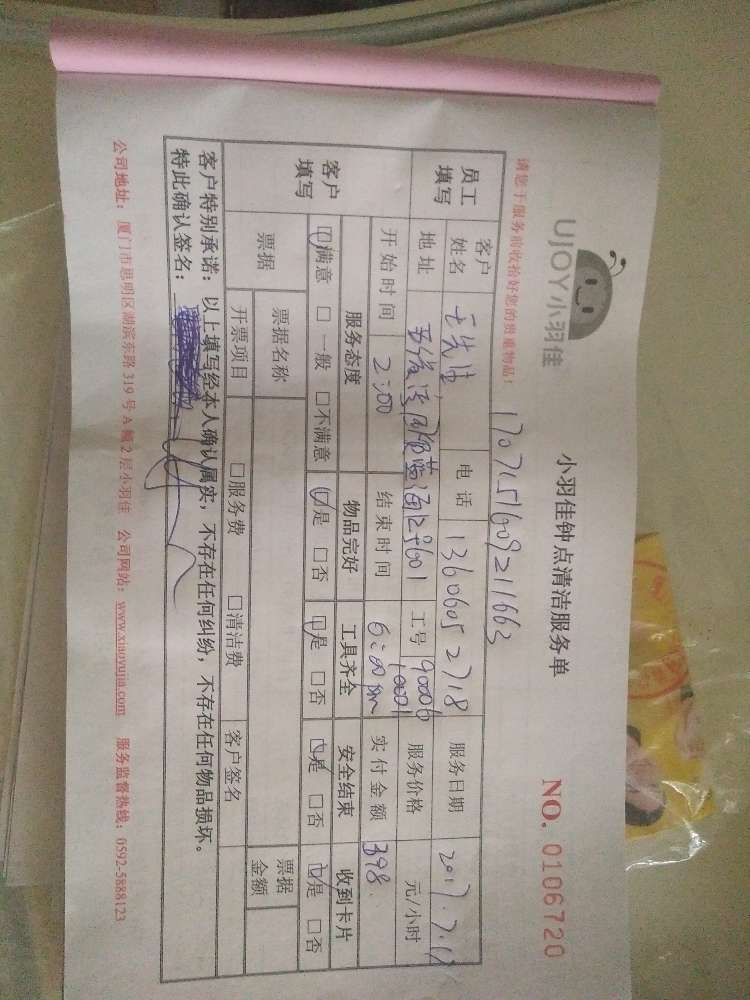 UJOY小羽佳
小羽佳钟点清洁服务单
NO. 0106720
请您于服务前收拾好您的贵重物品!
17071516009211663
员工填写
客户姓名 王先生 电话 13606052718 服务日期 2017.7.17
地址 国贸蓝海 工号 90006 10001 服务价格 元/小时
开始时间 2:00 结束时间 6:00pm 实付金额 398
客户填写
服务态度 物品完好 工具齐全 安全结束 收到卡片
☑满意 □一般 □不满意 ☑是 □否 ☑是 □否 ☑是 □否 ☑是 □否
票据 票据名称 票据金额
开票项目 □服务费 □清洁费 客户签名
客户特别承诺:以上填写经本人确认属实,不存在任何纠纷,不存在任何物品损坏。
特此确认签名:
公司地址:厦门市思明区湖滨东路319号A幢2层小羽佳 公司网站:www.xiaoyujia.com 服务监督热线:0592-5888123